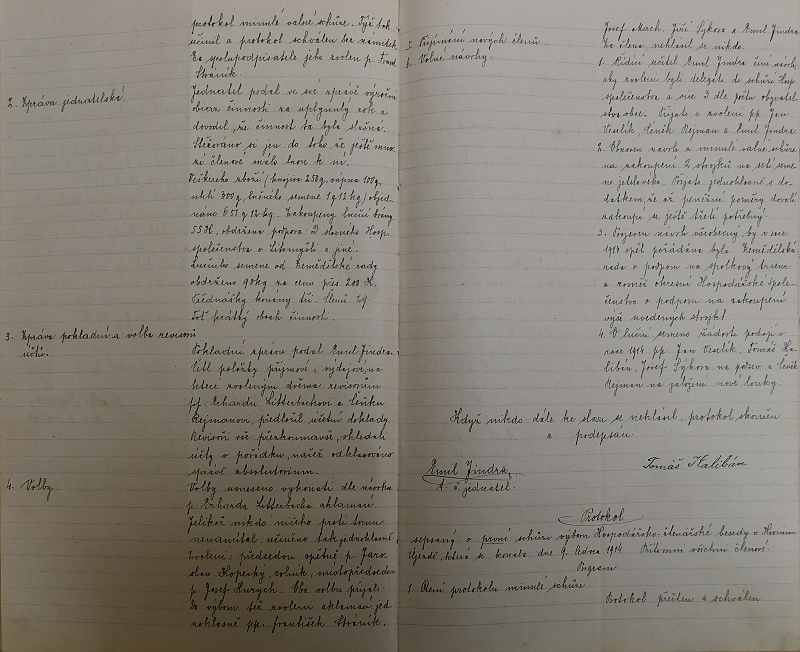 protokol minulé valné schůze. Týž tak
učinil a protokol schválen bez námitek.
Za spolupodpisatele jeho zvolen p. Frant.
Stráník.
2. Zpráva jednatelská.
Jednatel podal ve své zprávě výroční
obraz činnosti za uplynulý rok a
dovodil, že činnost ta byla slušná.
Stěžováno si jen do toho že ještě mno-
zí členové málo berou k ní.
Veškerého zboží (hnojiva 250 q, vápna 100 q,
uhlí 300 q, lučního semene 1 q 12 kg) objed-
náno 651 q 12 kg. Zakoupeny luční brány
55 K, obdržena podpora
společenstva v Litomyšli a jiné.
Lučního semene od Zemědělské rady
obdrženo 90 kg za cenu přes 200 K.
Přednášky konány tři. Členů 29.
Toť krátký obsah činnosti.
3. Zpráva pokladní a volba revisorů
účtů.
Pokladní zprávu podal Emil Jindra.
Četl položky příjmové i výdajové, na-
čež zvoleným dvěma revisorům
pp. Erhardu Litterbachovi a Čeňku
Rejmanovi, předložil účetní doklady.
Revisoři vše přezkoumavše, shledali
účty v pořádku, načež odhlasováno
správě absolutorium.
4. Volby
Volby usneseno vykonati dle návrhu
p. Erharda Litterbacha aklamací.
Jelikož nikdo ničeho proti tomu
nenamítal, učiněno tak jednohlasně.
Zvoleni: předsedou opětně p. Jaro-
slav Kopecký, rolník, místopředsedou
p. Josef Hurych. Oba volbu přijali.
Do výboru též zvoleni aklamací jed-
nohlasně pp. František Stráník.
5. Přijímání nových členů.
6. Volné návrhy.
Josef Mach, Jiří Sýkora a Emil Jindra.
Za člena nehlásil se nikdo.
1. Řídící učitel Emil Jindra činí návrh,
aby zvoleni byli delegáti do schůzí Hosp.
společenstva a sice 3 dle počtu obyvatel-
stva obce. Přijato a zvoleni pp. Jan
Veselík, Čeněk Rejman a Emil Jindra.
2. Obnoven návrh z minulé valné schůze
na zakoupení 2 strojků na setí seme-
ne jetelového. Přijato jednohlasně s do-
datkem, že až peněžní poměry dovolí,
zakoupí se ještě třetí potřebný.
3. Projeven návrh všeobecný, by v roce
1914 opět požádána byla Zemědělská
rada o podporu na
a rovněž okresní Hospodářské spole-
čenstvo o podporu na zakoupení
výše uvedených strojků.
4. O luční semeno žádosti podají v
roce 1914 pp. Jan Veselík, Tomáš Ha-
libán, Josef Sýkora na a Čeněk
Rejman na založení nové louky.
Když nikdo dále ke slovu se nehlásil, protokol skončen
a podepsán.
Emil Jindra,
t. č. jednatel.
Tomáš Halibán
Protokol
sepsaný o první schůzi výboru Hospodářsko-čtenářské besedy v Horním
Újezdě, která se konala dne 9. ledna 1914. Přítomni všichni členové.
Program
1. Čtení protokolu minulé schůze.
Protokol přečten a schválen